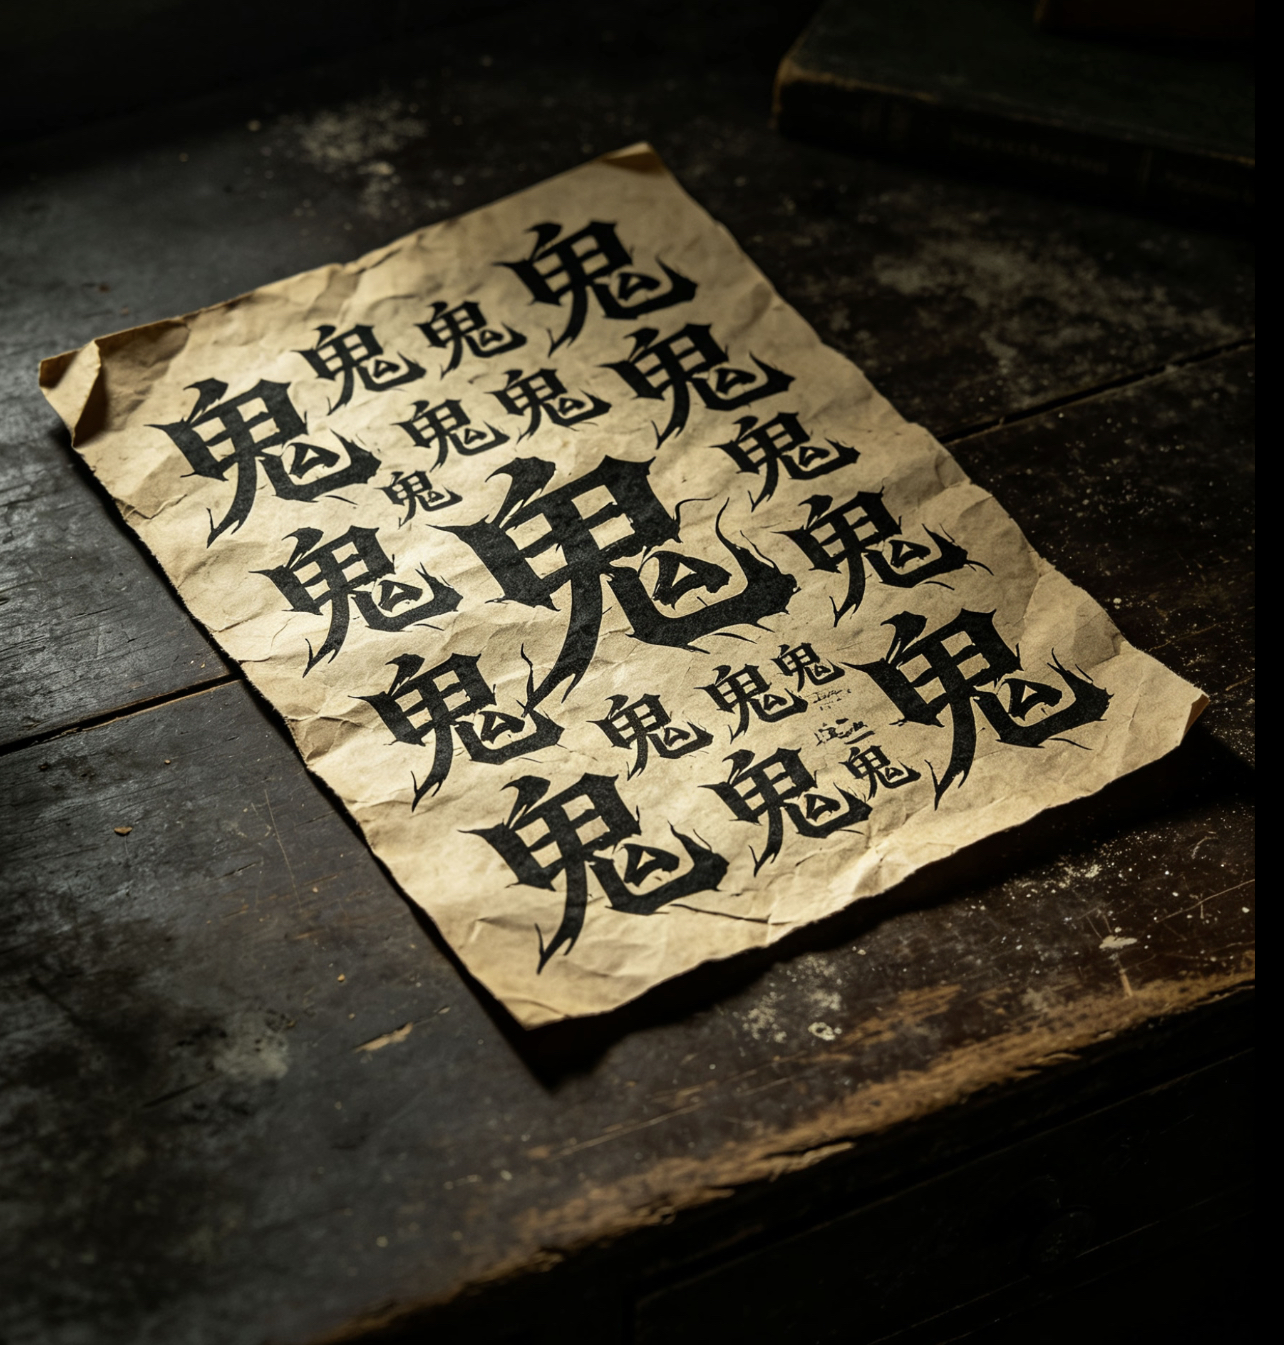 鬼 鬼 鬼 鬼
鬼 鬼 鬼
鬼 鬼
鬼 鬼 鬼
鬼 鬼 鬼 鬼 鬼
鬼 鬼 鬼